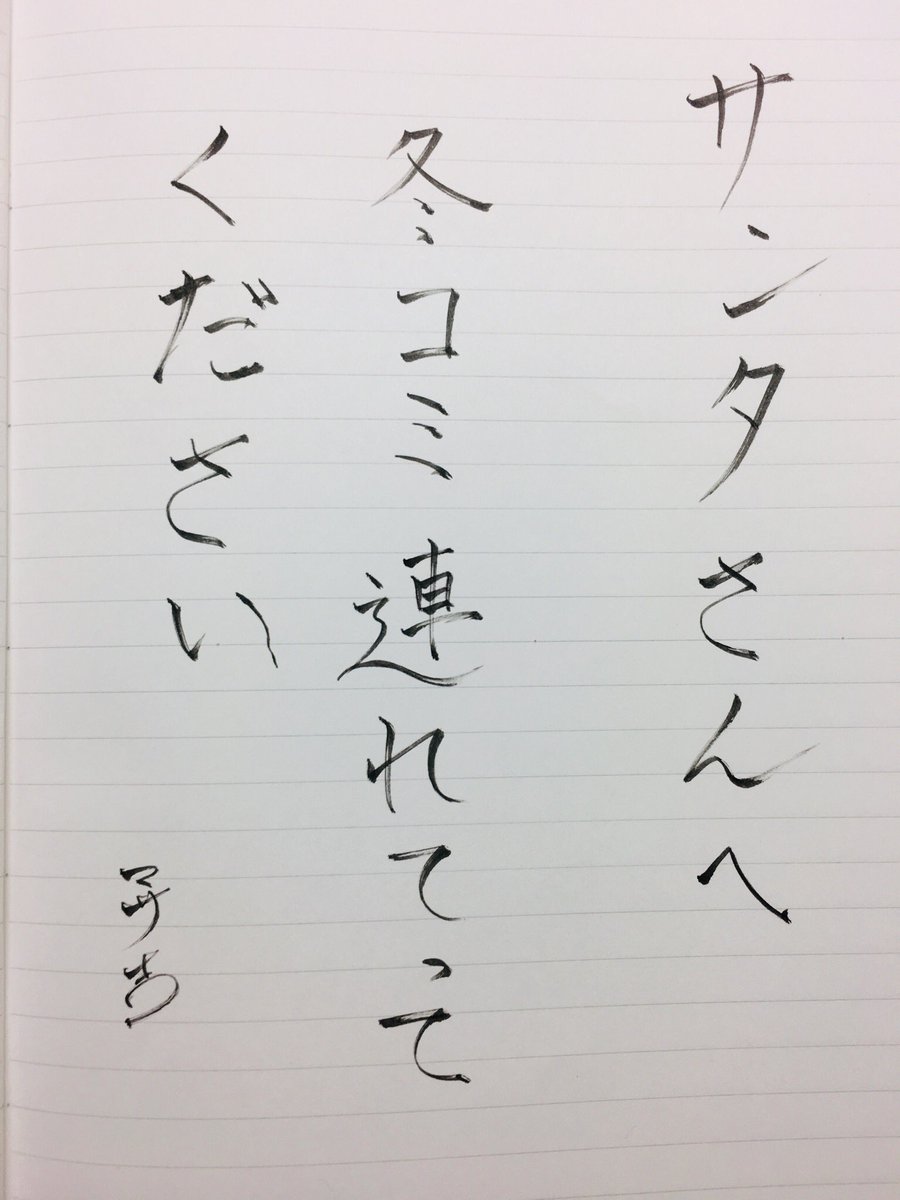 サンタさんへ
冬コミ連れてって
ください